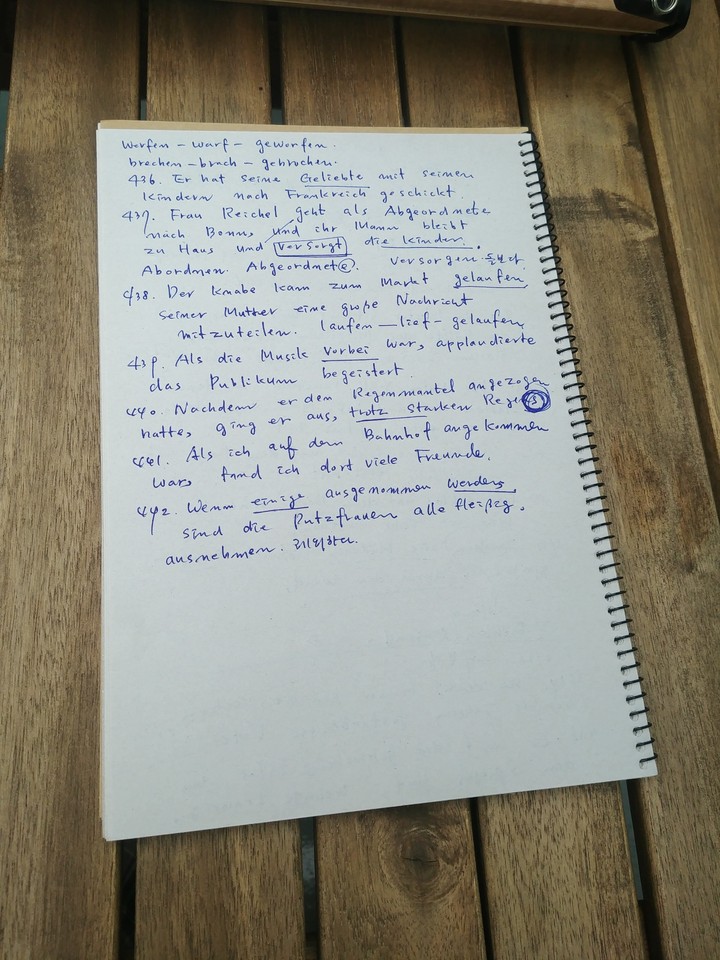 werfen – warf – geworfen.
brechen – brach – gebrochen.
436. Er hat seine Geliebte mit seinen
Kindern nach Frankreich geschickt.
437. Frau Reichel geht als Abgeordnete
nach Bonn, und ihr Mann bleibt
zu Haus und versorgt die Kinder.
Abordnen. Abgeordnete. versorgen. 돌보다
438. Der Knabe kam zum Markt gelaufen,
seiner Mutter eine große Nachricht
mitzuteilen. laufen – lief – gelaufen,
439. Als die Musik vorbei war, applaudierte
das Publikum begeistert.
440. Nachdem er den Regenmantel angezogen
hatte, ging er aus, trotz starken Regens
441. Als ich auf dem Bahnhof angekommen
war, fand ich dort viele Freunde.
442. Wenn einige ausgenommen werden,
sind die Putzfrauen alle fleißig.
ausnehmen. 제외하다.